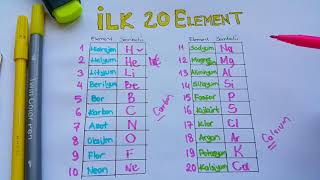 iLK 20 ELEMENT
Element Sembolü
1 Hidrojen H
2 Helyum He
3 Lityum Li
4 Berilyum Be
5 Bor B
6 Karbon C
7 Azot N
8 Oksijen O
9 Flor F
10 Neon Ne
Carbon
Element Sembolü
11 Sodyum Na
12 Magnezyum Mg
13 Alüminyum Al
14 Silisyum Si
15 Fosfor P
16 Kükürt S
17 Klor Cl
18 Argon Ar
19 Potasyum K
20 Kalsiyum Ca
Calcium
Twin Color Pen